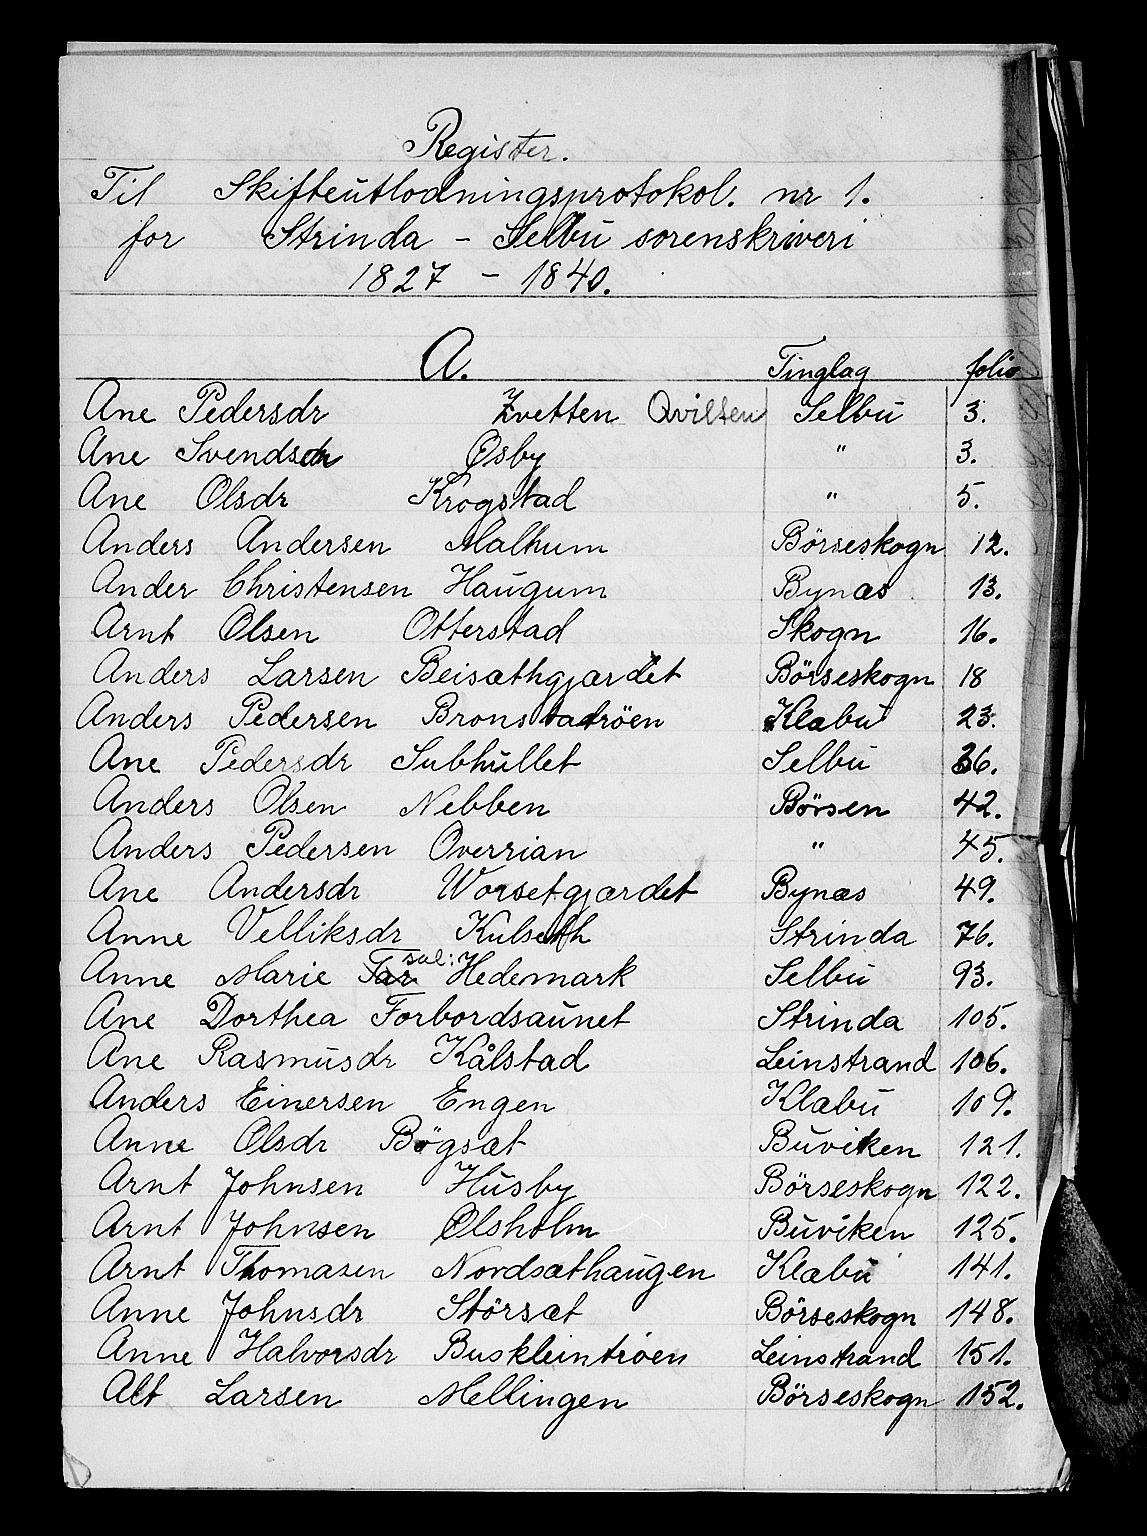 Register.
Til Skifteutlodningsprotokol. nr 1.
for Strinda - Selbu sorenskriveri
1827 - 1840.
A. Tinglag folio
Ane Pedersdr Zvetten Qvilten Selbu 3.
Ane Svendsdr Øsby " 3.
Ane Olsdr Krogstad " 5.
Anders Andersen Malhum Börseskogn 12.
Ander Christensen Haugum Bynæs 13.
Arnt Olsen Otterstad Skogn 16.
Anders Larsen Beisæthgjærdet Börseskogn 18
Anders Pedersen Bronstadtröen Klæbu 23.
Ane Pedersdr Subhullet Selbu 36.
Anders Olsen Nebben Börsen 42.
Anders Pedersen Overrian " 45.
Ane Andersdr Worsetgjærdet Bynæs 49.
Anne Velliksdr Kulseth Strinda 76.
Anne Marie sal: Hedemark Selbu 93.
Ane Dorthea Forbordsaunet Strinda 105.
Ane Rasmusdr Kålstad Leinstrand 106.
Anders Einersen Engen Klæbu 109.
Anne Olsdr Bøgsæt Buviken 121.
Arnt Johnsen Husby Börseskogn 122.
Arnt Johnsen Ølsholm Buviken 125.
Arnt Thomasen Nordsæthaugen Klæbu 141.
Anne Johnsdr Störsæt Börseskogn 148.
Anne Halvorsdr Buskleintröen Leinstrand 151.
Alt Larsen Mellingen Börseskogn 152.